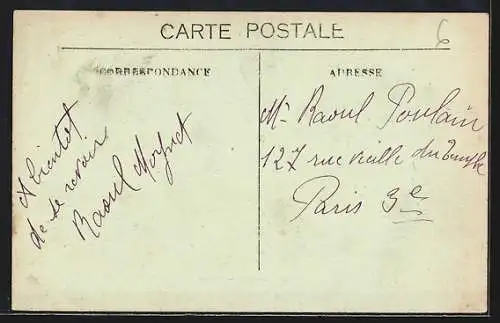 CARTE POSTALE
6
CORRESPONDANCE
ADRESSE
A bientot
de se revoir
Raoul
Mr Raoul Poulain
127 rue vieille du Temple
Paris 3e